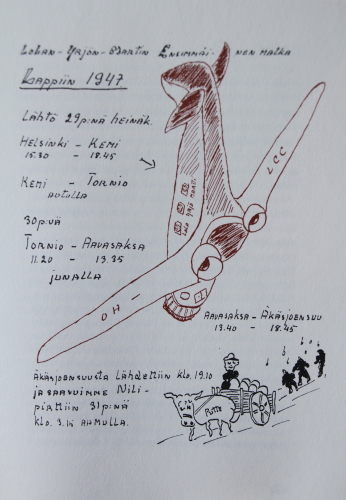 Lolan - Yrjön - Martin Ensimmäi- nen matka
Lappiin 1947
Lähtö 29 p:nä heinäk.
Helsinki - Kemi
15.30 - 18.45
Kemi - Tornio
autolla
30 p:vä
Tornio - Aavasaksa
11.20 - 13.35
junalla
LCC
OH -
Aavasaksa - Äkäsjoensuu
13.40 - 18.45
Äkäsjoensuusta lähdettiin klo. 19.10
ja saavuimme Nili-
pirttiin 31 p:nä
klo. 3.15 aamulla.